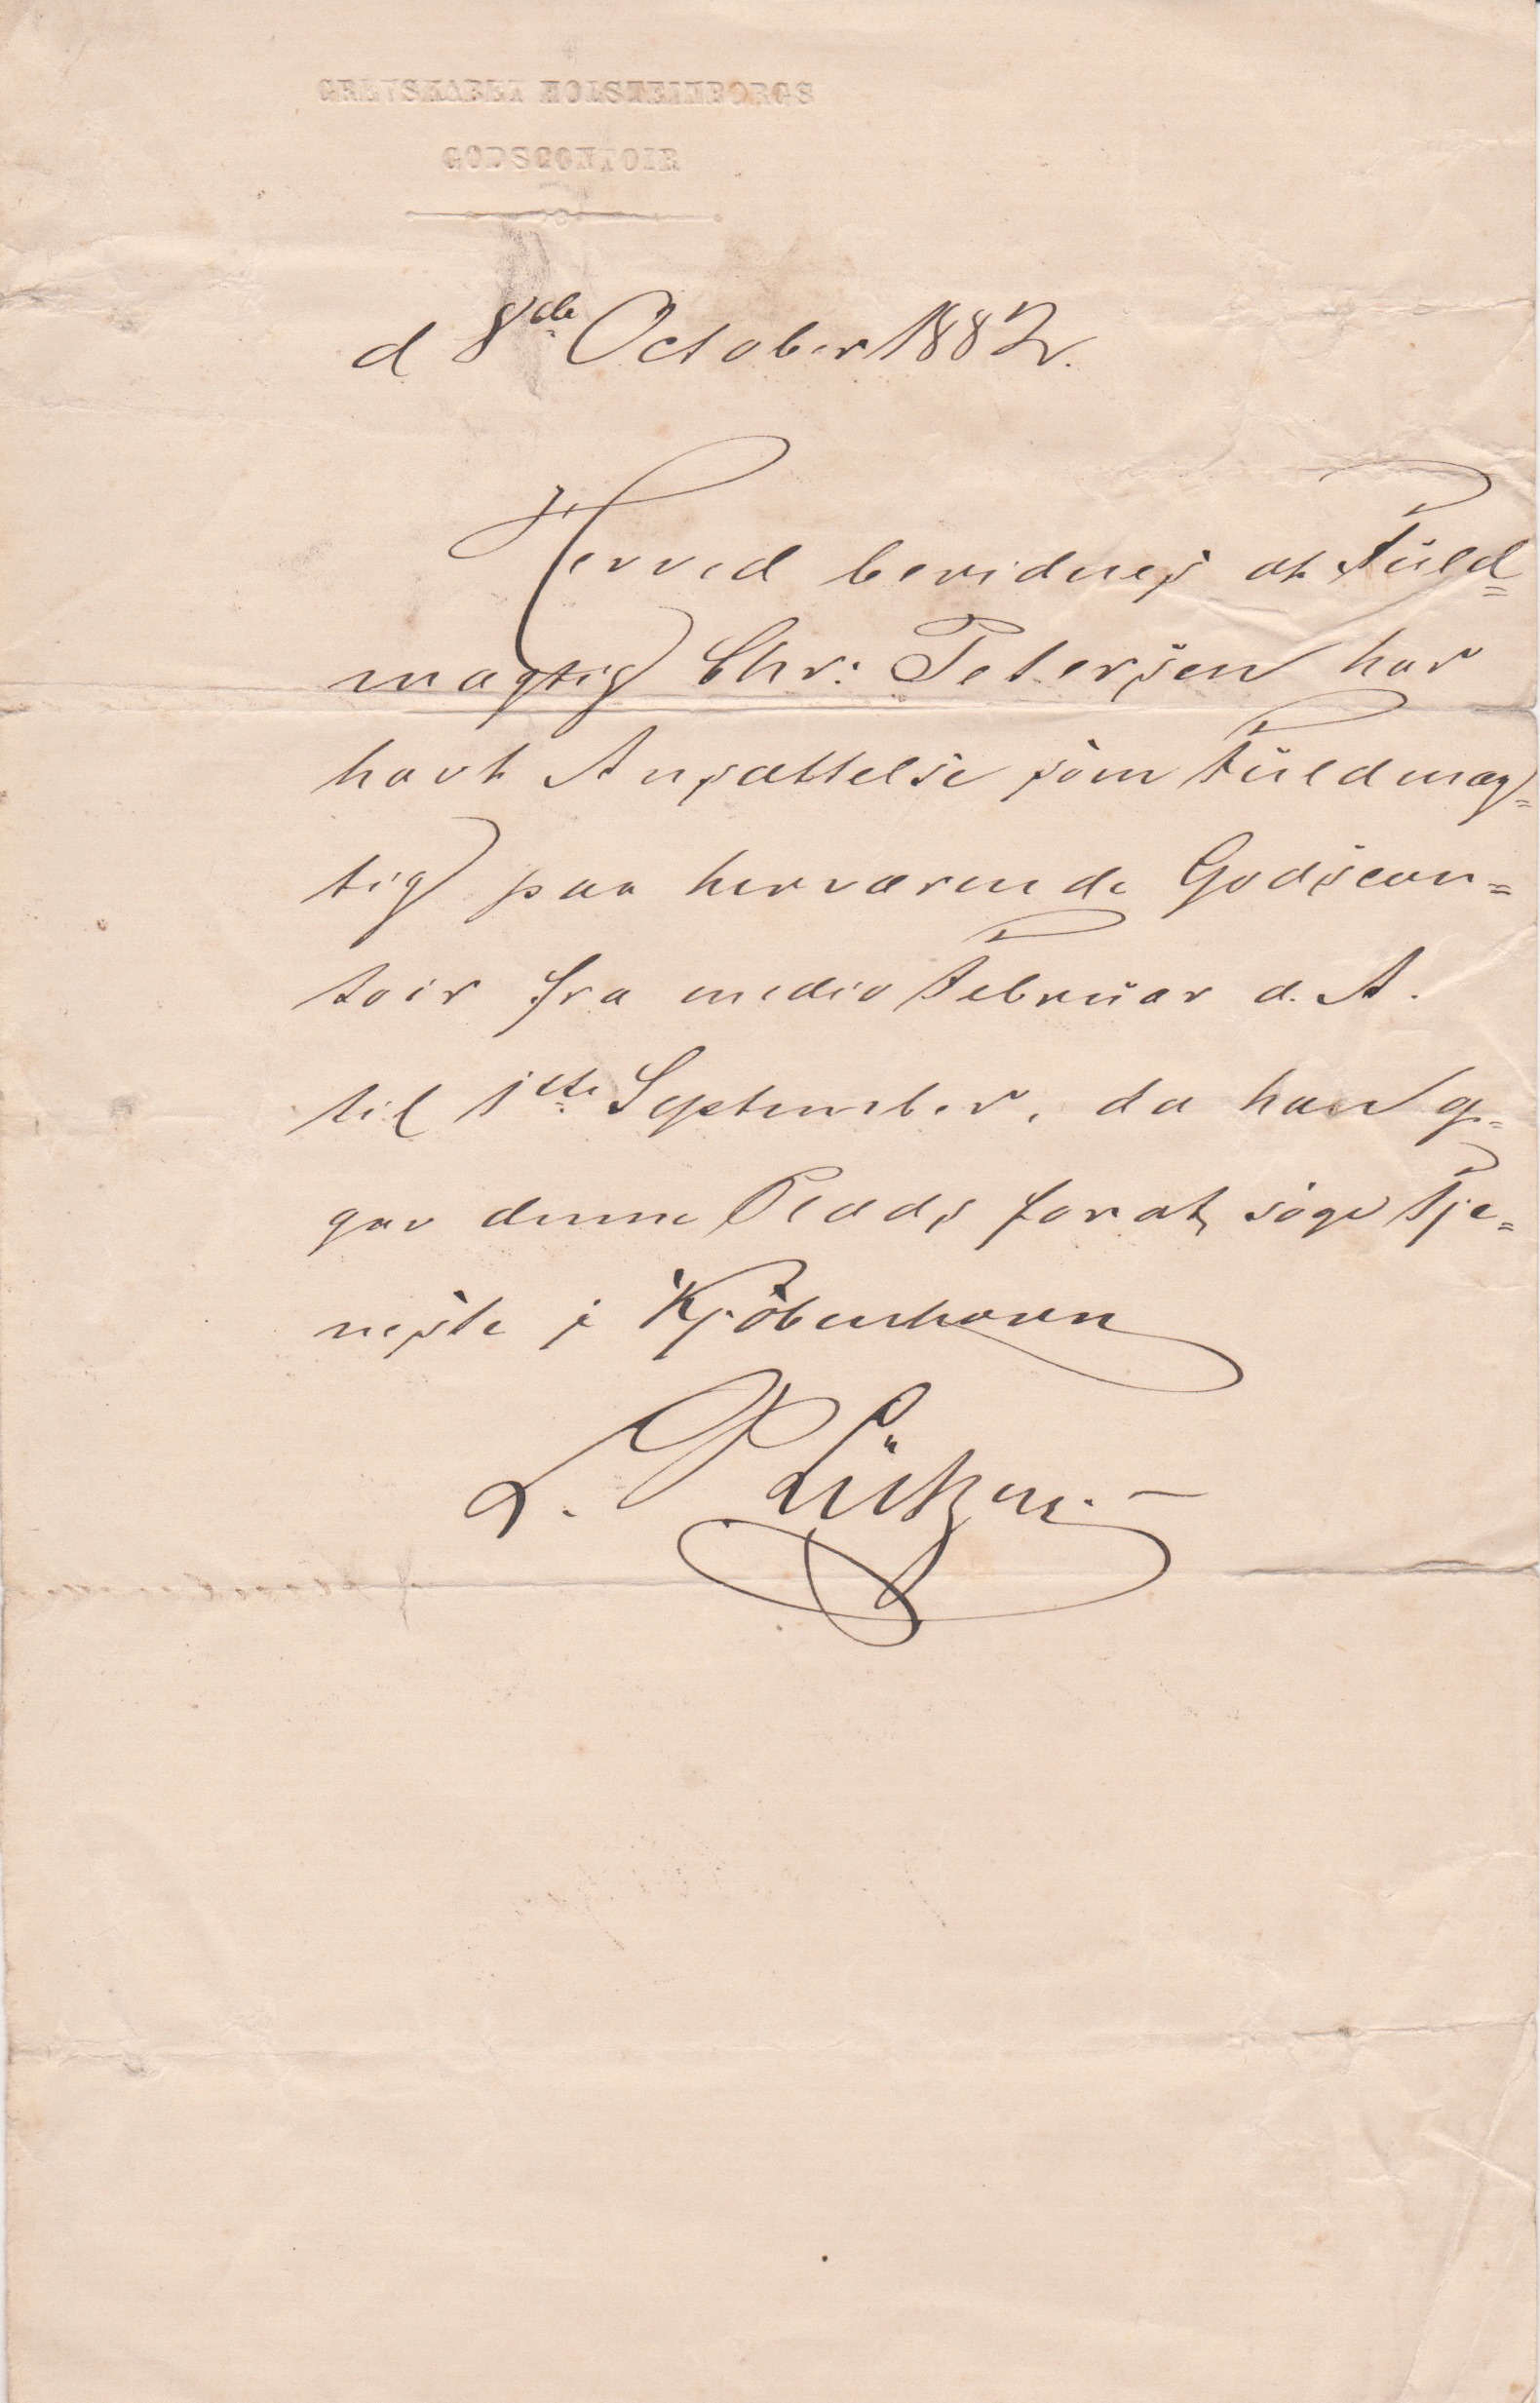 GREVSKABET HOLSTEINBORGS
GODSCONTOIR
d 8de October 1882.
Herved bevidnes at Fuld=
mægtig Chr: Petersen har
havt Ansættelse som Fuldmæg=
tig paa herværende Godscon=
toir fra medio Februar d. A.
til 1ste September, da han op=
gav denne Plads for at søge Tje=
neste i Kjøbenhavn
Lützen.